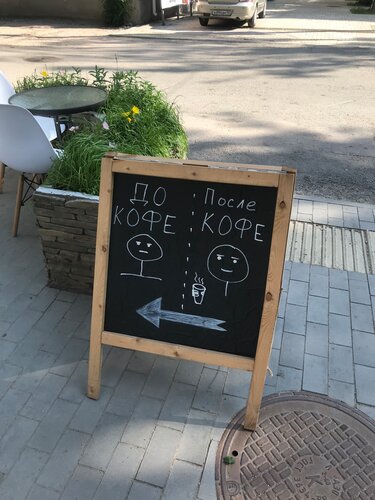 ДО
КОФЕ
После
КОФЕ